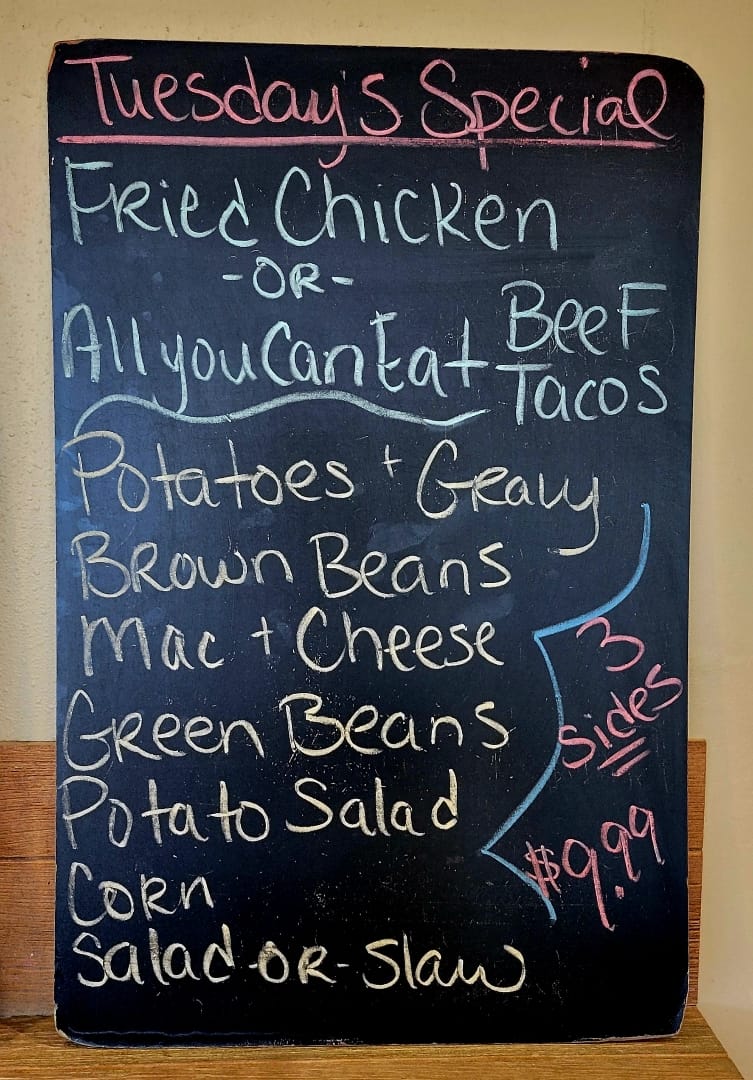 Tuesday's Special
Fried Chicken
-OR-
All you Can Eat Beef Tacos
Potatoes + Gravy
Brown Beans
Mac + Cheese
Green Beans
Potato Salad
Corn
Salad-OR-Slaw
3
Sides
$9.99